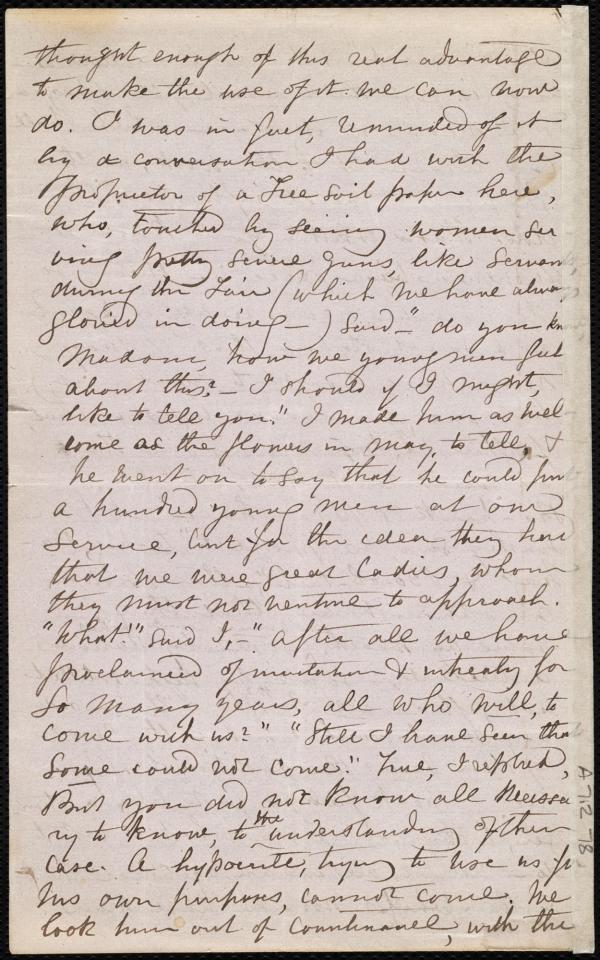 thought enough of this real advantage
to make the use of it we can now
do. I was in fact, reminded of it
by a conversation I had with the
proprietor of a Free soil paper here,
who, touched by seeing women ser
ving pretty severe guns, like servan
during the Fair (which we have alwa
gloried in doing —) said — "do you kn
Madam, how we young men feel
about this? — I should if I might,
like to tell you." I made him as wel
come as the flowers in may, to tell, &
he went on to say that he could fin
a hundred young men at our
service, but for the idea they have
that we were great Ladies, whom
they must not venture to approach.
"What!" said I, — "after all we have
proclaimed of invitation & intreaty for
so many years, all who will, to
come with us?" "Still I have seen tha
some could not come." True, I replied,
But you did not know all necessa
ry to know, to the understanding of their
case. A hypocrite, trying to use us fo
his own purposes, cannot come. We
look him out of countenance, with the
A 7.2 78